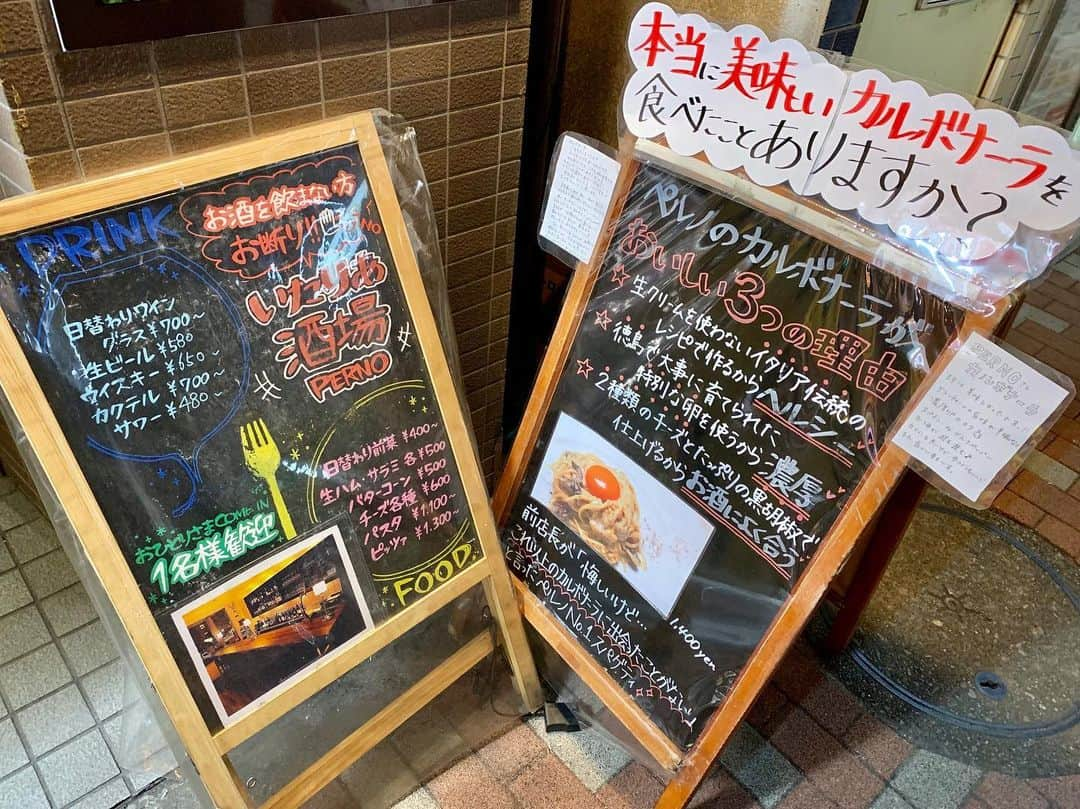 DRINK
お酒を飲まない方
お断り
いけにりあ
酒場
PERNO
日替わりワイン
グラス ¥700~
生ビール ¥580
ウイスキー ¥650~
カクテル ¥700~
サワー ¥480~
おひとりさまCOME IN
1名様歓迎
日替わり前菜 ¥400~
生ハム、サラミ 各¥500
バターコーン ¥500
チーズ各種 ¥600
パスタ ¥1,100~
ピッツァ ¥1,300~
FOOD
本当に美味しいカルボナーラを
食べたことありますか?
ペルノのカルボナーラが
おいしい3つの理由
☆生クリームを使わないイタリア伝統の
レシピで作るからヘルシー
☆徳島で大事に育てられた
特別な卵を使うから濃厚
☆2種類のチーズとたっぷりの黒胡椒で
仕上げるからお酒によく合う
1,400yen
前店長が「悔しいけど...
これ以上のカルボナーラに出会ったことがない」
と言ったペルノNo.1スパゲティ